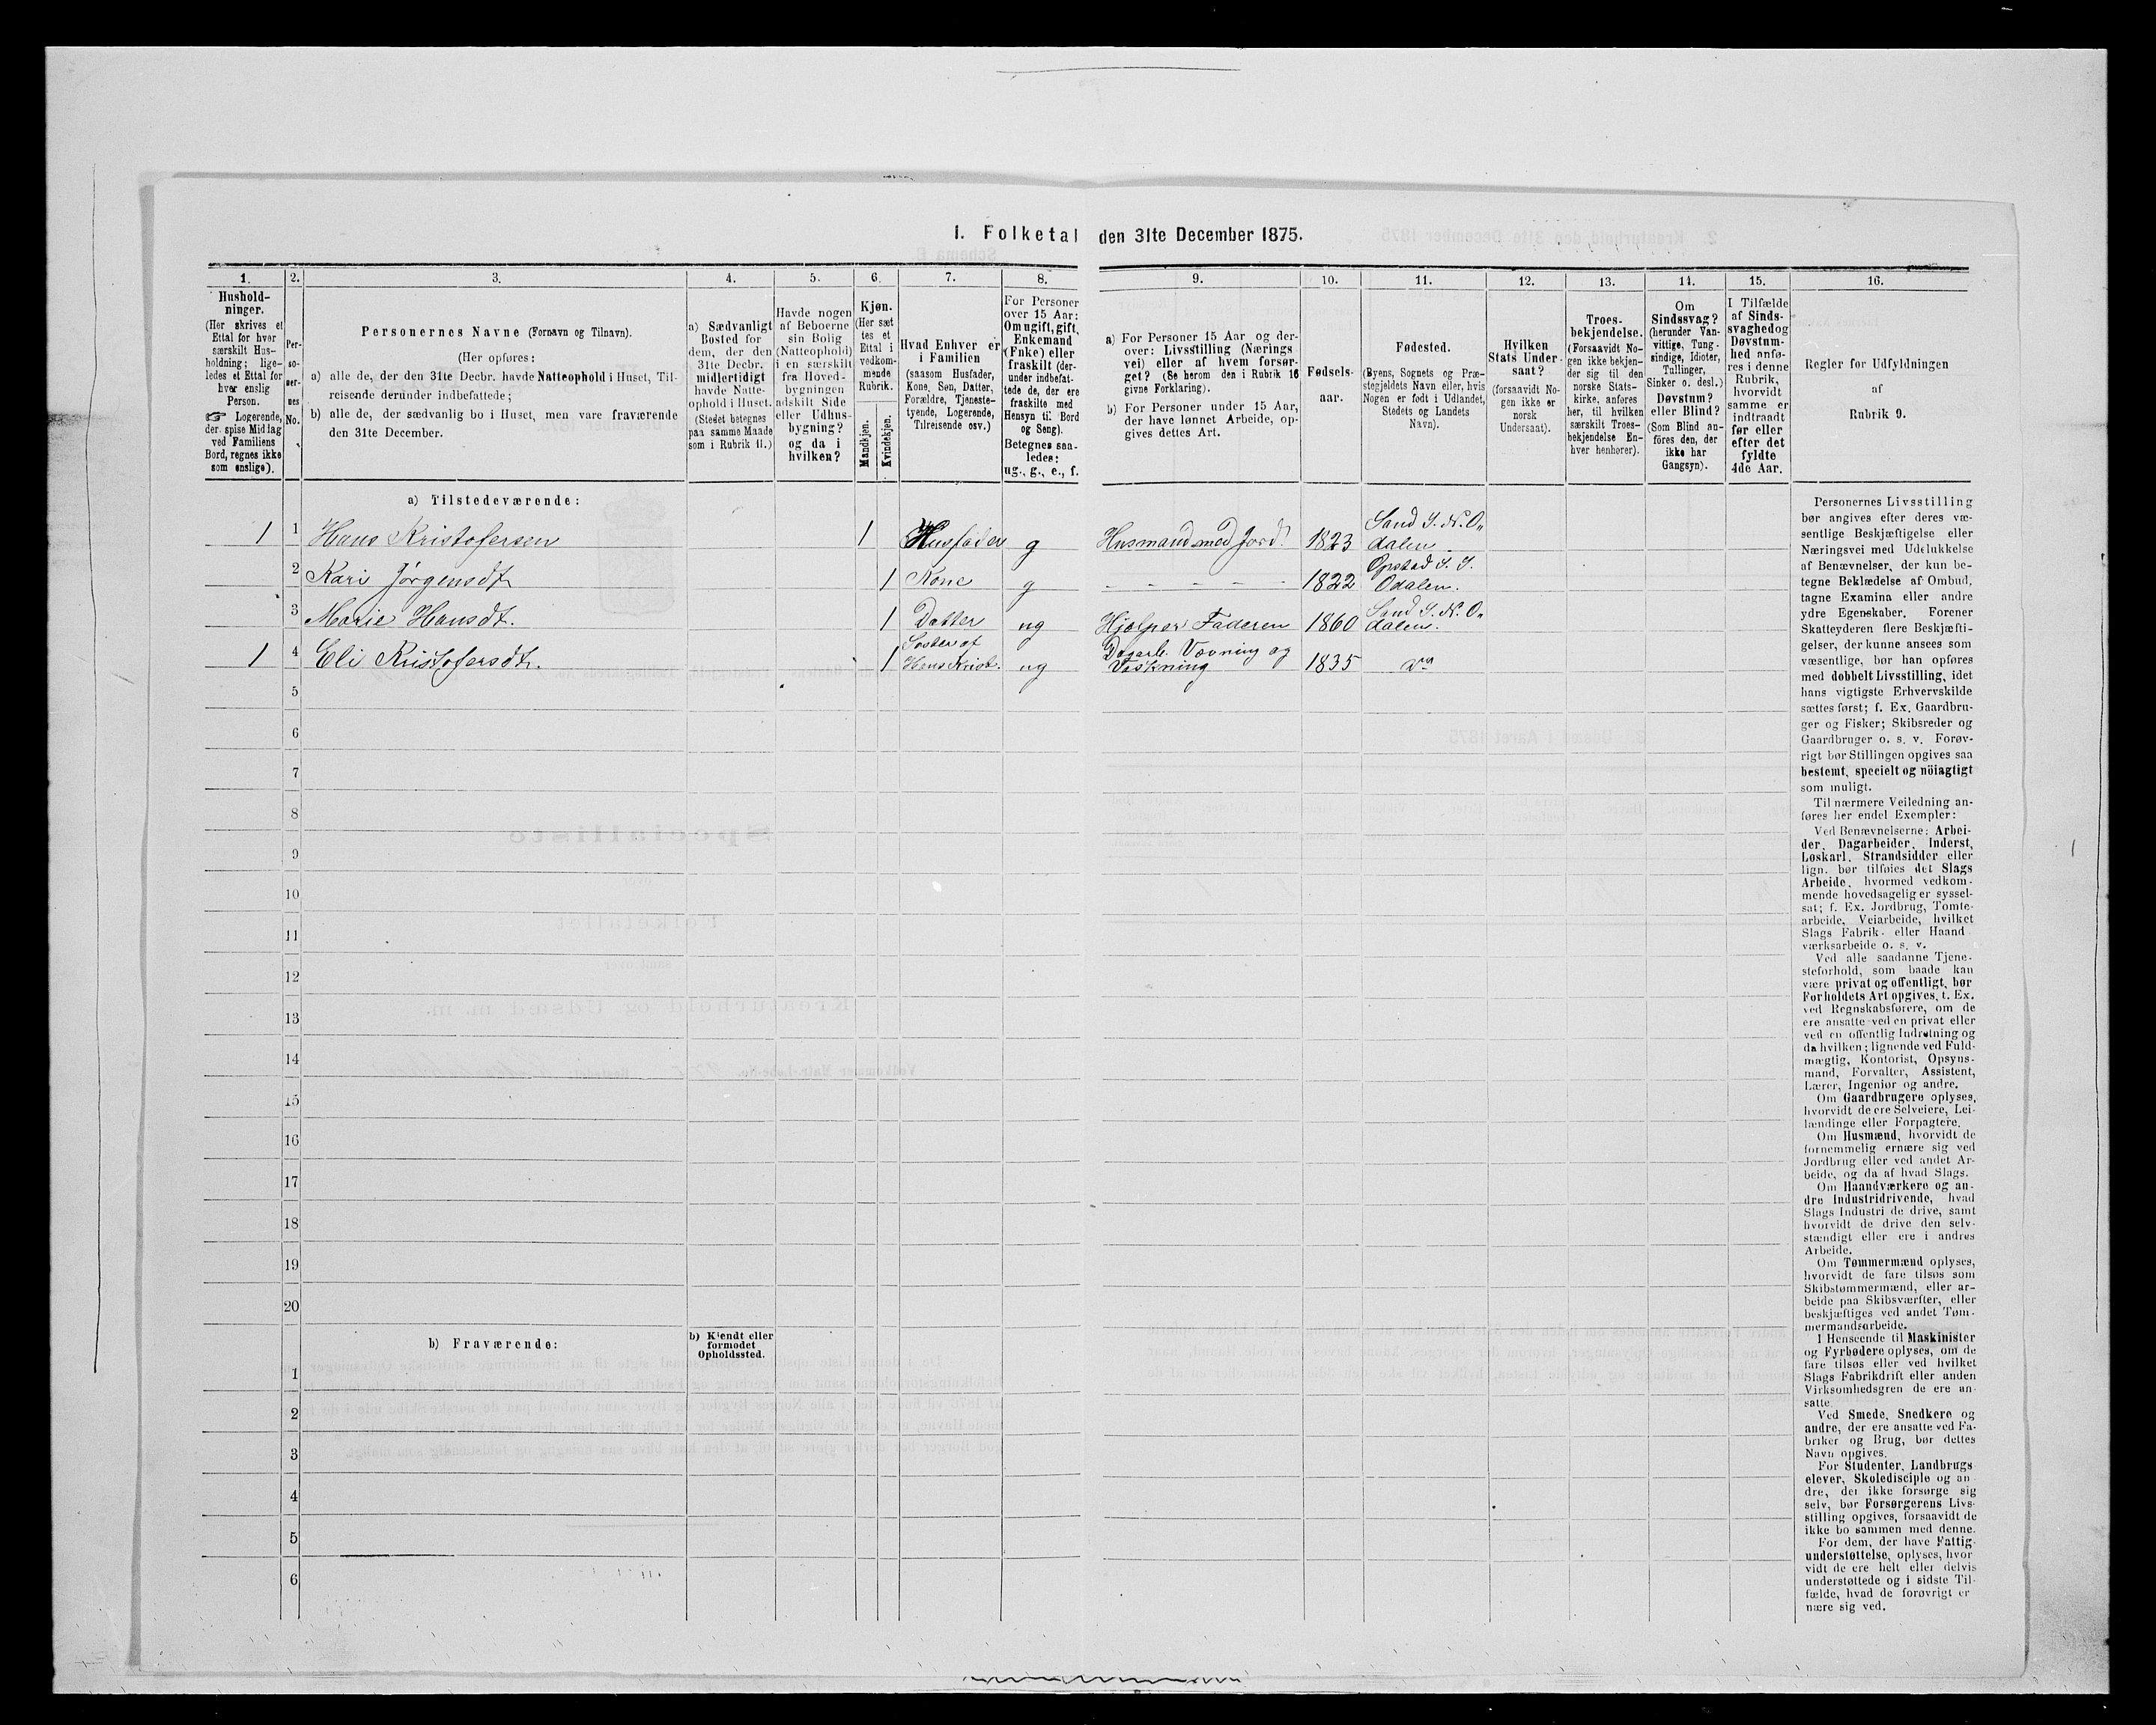 1. Folketal den 31te December 1875.
1.
2.
3.
4.
5.
6.
7.
8.
9.
10.
11.
12.
13.
14.
15.
16.
Hushold-
ninger.
(Her skrives et
Ettal for hver
særskilt Hus-
holdning; lige-
ledes et Ettal for
hver enslig
Person.
☞ Logerende,
der spise Middag
ved Familiens
Bord, regnes ikke
som enslige).
Per-
so-
ner-
nes
No.
Personernes Navne (Fornavn og Tilnavn).
(Her opføres:
a) alle de, der den 31te Decbr. havde Natteophold i Huset, Til-
reisende derunder indbefattede;
b) alle de, der sædvanlig bo i Huset, men vare fraværende
den 31te December.
a) Sædvanligt
Bosted for
dem, der den
31te Decbr.
midlertidigt
havde Natte-
ophold i Huset.
(Stedet betegnes
paa samme Maade
som i Rubrik 11.)
Havde nogen
af Beboerne
sin Bolig
(Natteophold)
i en særskilt
fra Hoved-
bygningen
adskilt Side
eller Udhus-
bygning?
og da i
hvilken?
Kjøn.
(Her sæt
tes et
Ettal i
vedkom-
mende
Rubrik.
Mandkjøn.
Kvindekjøn.
Hvad Enhver er
i Familien
(saasom Husfader,
Kone, Søn, Datter,
Forældre, Tjeneste-
tyende, Logerende,
Tilreisende osv.)
For Personer
over 15 Aar:
Om ugift, gift,
Enkemand
(Enke) eller
fraskilt (der-
under indbefat-
tede de, der ere
fraskilte med
Hensyn til Bord
og Seng).
Betegnes saa-
ledes:
ug., g., e., f.
a) For Personer 15 Aar og der-
over: Livsstilling (Nærings
vei) eller af hvem forsør-
get? (Se herom den i Rubrik 16
givne Forklaring).
b) For Personer under 15 Aar,
der have lønnet Arbeide, op-
gives dettes Art.
Fødsels-
aar.
Fødested.
(Byens, Sognets og Præ-
stegjeldets Navn eller, hvis
Nogen er født i Udlandet,
Stedets og Landets
Navn).
Hvilken
Stats Under-
saat?
(forsaavidt No-
gen ikke er
norsk
Undersaat).
Troes-
bekjendelse.
(Forsaavidt No-
gen ikke bekjen-
der sig til den
norske Stats-
kirke, anføres
her, til hvilken
særskilt Troes-
bekjendelse En-
hver henhører).
Om
Sindssvag?
(herunder Van-
vittige, Tung-
sindige, Idioter,
Tullinger,
Sinker o. desl.)
Døvstum?
eller Blind?
(Som Blind an-
føres den, der
ikke har
Gangsyn).
I Tilfælde
af Sinds-
svaghed og
Døvstum-
hed anfø-
res i denne
Rubrik,
hvorvidt
samme er
indtraadt
før eller
efter det
fyldte
4de Aar.
Regler for Udfyldningen
af
Rubrik 9.
a) Tilstedeværende:
1 1 Hans Kristofersen 1 Husfader g Husmand med Jord 1823 Sand S. N. O„
dalen.
2 Kari Jørgensdt 1 Kone g - - - - - 1822 Opstad S. S.
Odalen.
3 Marie Hansdt. 1 Datter ug Hjælper Faderen 1860 Sand S. N. O„
dalen.
1 4 Eli Kristofersdt. 1 Søster af
Hans Krist. ug Dagarb. Vævning og
Vaskning 1835 do
5
6
7
8
9
10
11
12
13
14
15
16
17
18
19
20
b) Fraværende:
b) Kjendt eller
formodet
Opholdssted.
1
2
3
4
5
6
Personernes Livsstilling
bør angives efter deres væ-
sentlige Beskjæftigelse eller
Næringsvei med Udelukkelse
af Benævnelser, der kun be-
tegne Beklædelse af Ombud,
tagne Examina eller andre
ydre Egenskaber. Forener
Skatteyderen flere Beskjæfti-
gelser, der kunne ansees som
væsentlige, bør han opføres
med dobbelt Livsstilling, idet
hans vigtigste Erhvervskilde
sættes først; f. Ex. Gaardbru-
ger og Fisker; Skibsreder og
Gaardbruger o. s. v. Forøv-
rigt bør Stillingen opgives saa
bestemt, specielt og nøiagtigt
som muligt.
Til nærmere Veiledning an-
føres her endel Exempler:
Ved Benævnelserne: Arbei-
der, Dagarbeider, Inderst,
Løskarl, Strandsidder eller
lign. bør tilføies det Slags
Arbeide, hvormed vedkom-
mende hovedsagelig er syssel-
sat; f. Ex. Jordbrug, Tomte-
arbeide, Veiarbeide, hvilket
Slags Fabrik- eller Haand
værksarbeide o. s. v.
Ved alle saadanne Tjene-
steforhold, som baade kan
være privat og offentligt, bør
Forholdets Art opgives, t. Ex.
ved Regnskabsførere, om de
ere ansatte ved en privat eller
ved en offentlig Indretning og
da hvilken; lignende ved Fuld-
mægtig, Kontorist, Opsyns-
mand, Forvalter, Assistent,
Lærer, Ingeniør og andre.
Om Gaardbrugere oplyses,
hvorvidt de ere Selveiere, Lei-
lændinge eller Forpagtere.
Om Husmænd, hvorvidt de
fornemmelig ernære sig ved
Jordbrug eller ved andet Ar-
beide, og da af hvad Slags.
Om Haandværkere og an-
dre Industridrivende, hvad
Slags Industri de drive, samt
hvorvidt de drive den selv-
stændigt eller ere i andres
Arbeide.
Om Tømmermænd oplyses,
hvorvidt de fare tilsøs som
Skibstømmermænd, eller ar-
beide paa Skibsværfter, eller
beskjæftiges ved andet Tøm-
mermandsarbeide.
I Henseende til Maskinister
og Fyrbødere oplyses, om de
fare tilsøs eller ved hvilket
Slags Fabrikdrift eller anden
Virksomhedsgren de ere an-
satte.
Ved Smede, Snedkere og
andre, der ere ansatte ved Fa-
briker og Brug, bør dettes
Navn opgives.
For Studenter, Landbrugs
elever, Skoledisciple og an-
dre, der ikke forsørge sig
selv, bør Forsørgerens Livs-
stilling opgives, forsaavidt de
ikke bo sammen med denne.
For dem, der have Fattig-
understøttelse, oplyses, hvor
vidt de ere helt eller delvis
understøttede og i sidste Til-
fælde, hvad de forøvrigt er
nære sig ved.